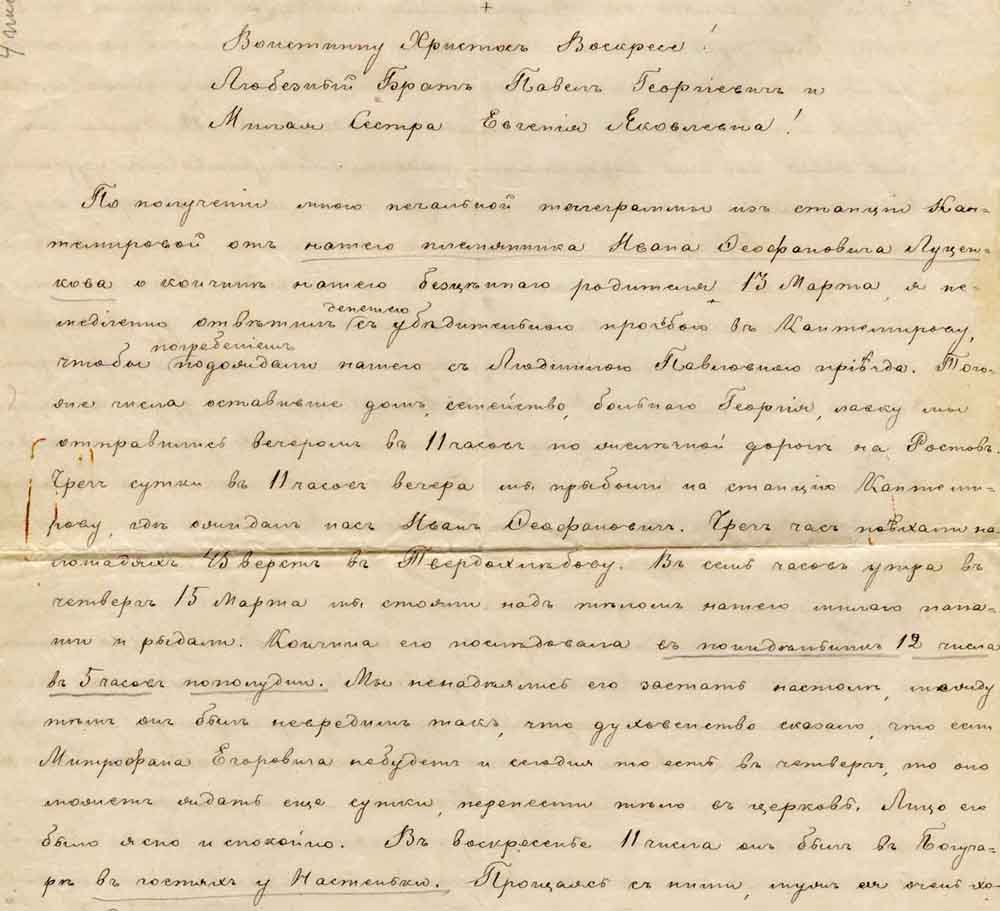 4 
+
Воистинну Христосъ Воскресе!
Любезный Братъ Павелъ Георгіевичъ и
Милая Сестра Евгенія Яковлевна!
По полученіи мною печальной телеграммы изъ станціи Кан-
темировой отъ нашего племянника Ивана Ѳеофановича Луцен-
кова о кончинѣ нашего безцѣннаго родителя 13 Марта, я не-
депешею
медленно отвѣтилъ съ убѣдительною прозьбою въ Кантемирову,
погребеніемъ
чтобы подождали нашего съ Людмилою Павловною пріѣзда. Того-
же числа оставивше домъ, семейство, больного Георгія, лавку мы
отправились вечеромъ въ 11 часовъ по желѣзной дорогѣ на Ростовъ.
Чрезъ сутки въ 11 часовъ вечера мы прибыли на станцію Кантеми-
рову, гдѣ ожидалъ насъ Иванъ Ѳеофановичъ. Чрезъ часъ поѣхали на
лошадяхъ 45 верстъ въ Твердохлѣбову. Въ семь часовъ утра въ
четвергъ 15 Марта мы стояли надъ тѣломъ нашего милаго папа-
ши и рыдали. Кончина его послѣдовала въ понидѣльникъ 12 числа
въ 5 часовъ пополудни. Мы ненадѣялись его застать настолѣ, между
тѣмъ онъ былъ невредимъ такъ, что духовенство сказало, что если
Митрофана Егоровича небудетъ и сегодня то есть въ четвергъ, то оно
можетъ ждать еще сутки, перенести тѣло въ церковь. Лицо его
было ясно и спокойно. Въ воскресенье 11 числа онъ былъ въ Богуча-
рѣ въ гостяхъ у Настеньки. Прощаясь съ ними, мужъ ея очень хо-